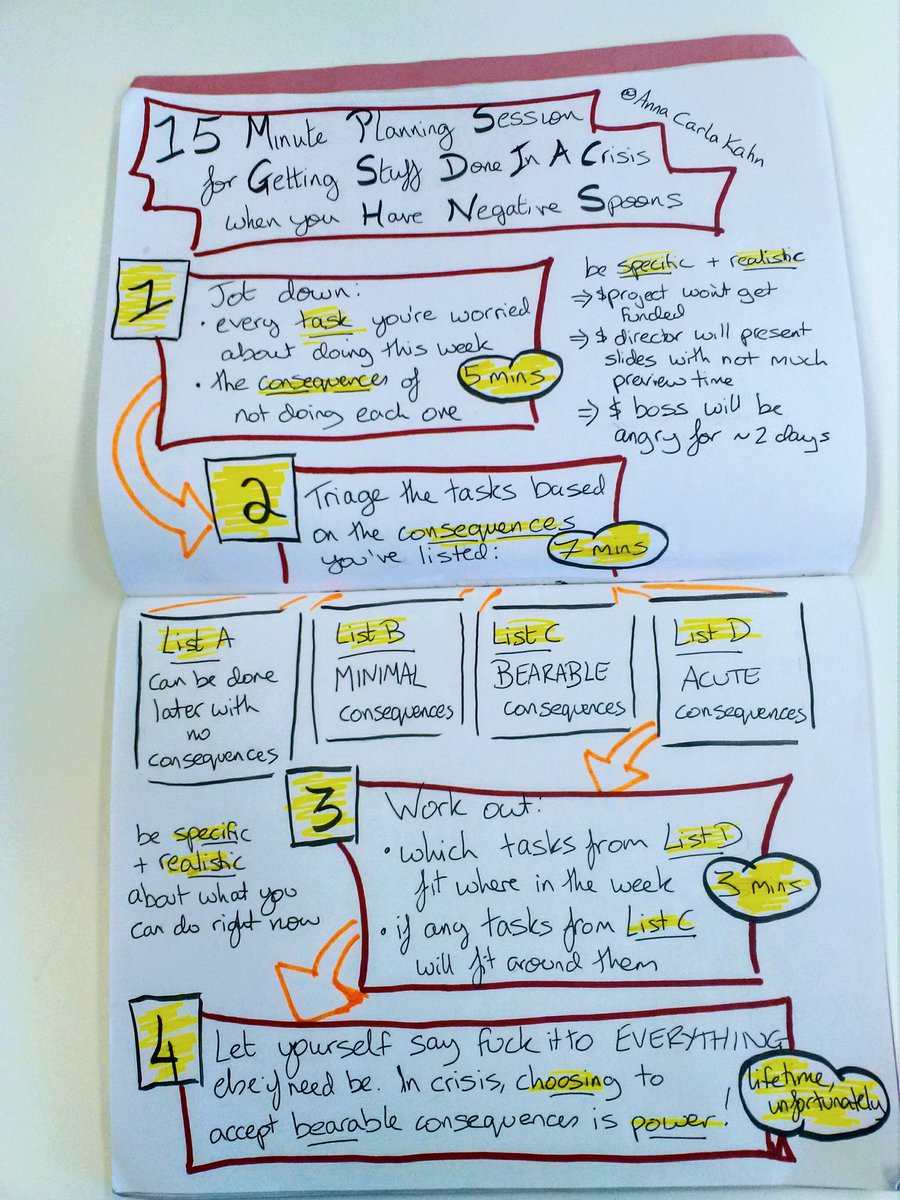 15 Minute Planning Session
for Getting Stuff Done In A Crisis
when you Have Negative Spoons
@Anna Carla Kahn
1
Jot down:
• every task you're worried
about doing this week
• the consequences of
not doing each one
5 mins
be specific + realistic
⇒ $project won't get
funded
⇒ $ director will present
slides with not much
preview time
⇒ $ boss will be
angry for ~2 days
2
Triage the tasks based
on the consequences
you've listed:
7 mins
List A
can be done
later with
no
consequences
List B
MINIMAL
consequences
List C
BEARABLE
consequences
List D
ACUTE
consequences
3
Work out:
• which tasks from List D
fit where in the week
• if any tasks from List C
will fit around them
3 mins
be specific
+ realistic
about what you
can do right now
4
Let yourself say fuck it to EVERYTHING
else if need be. In crisis, choosing to
accept bearable consequences is power!
lifetime,
unfortunately